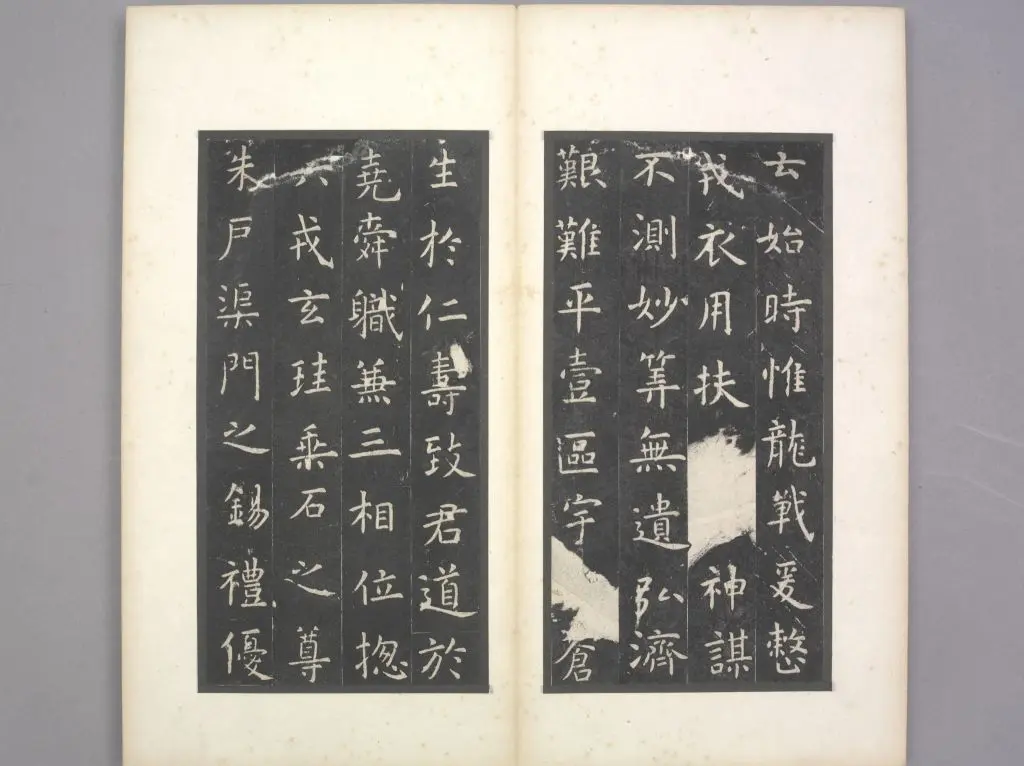 云始時惟龍戰爰整
戎衣用扶神謀
不測妙筭無遺弘濟
艱難平壹區宇蒼
生於仁壽致君道於
堯舜職兼三相位揔
六戎玄珪乘石之尊
朱戶渠門之錫禮優